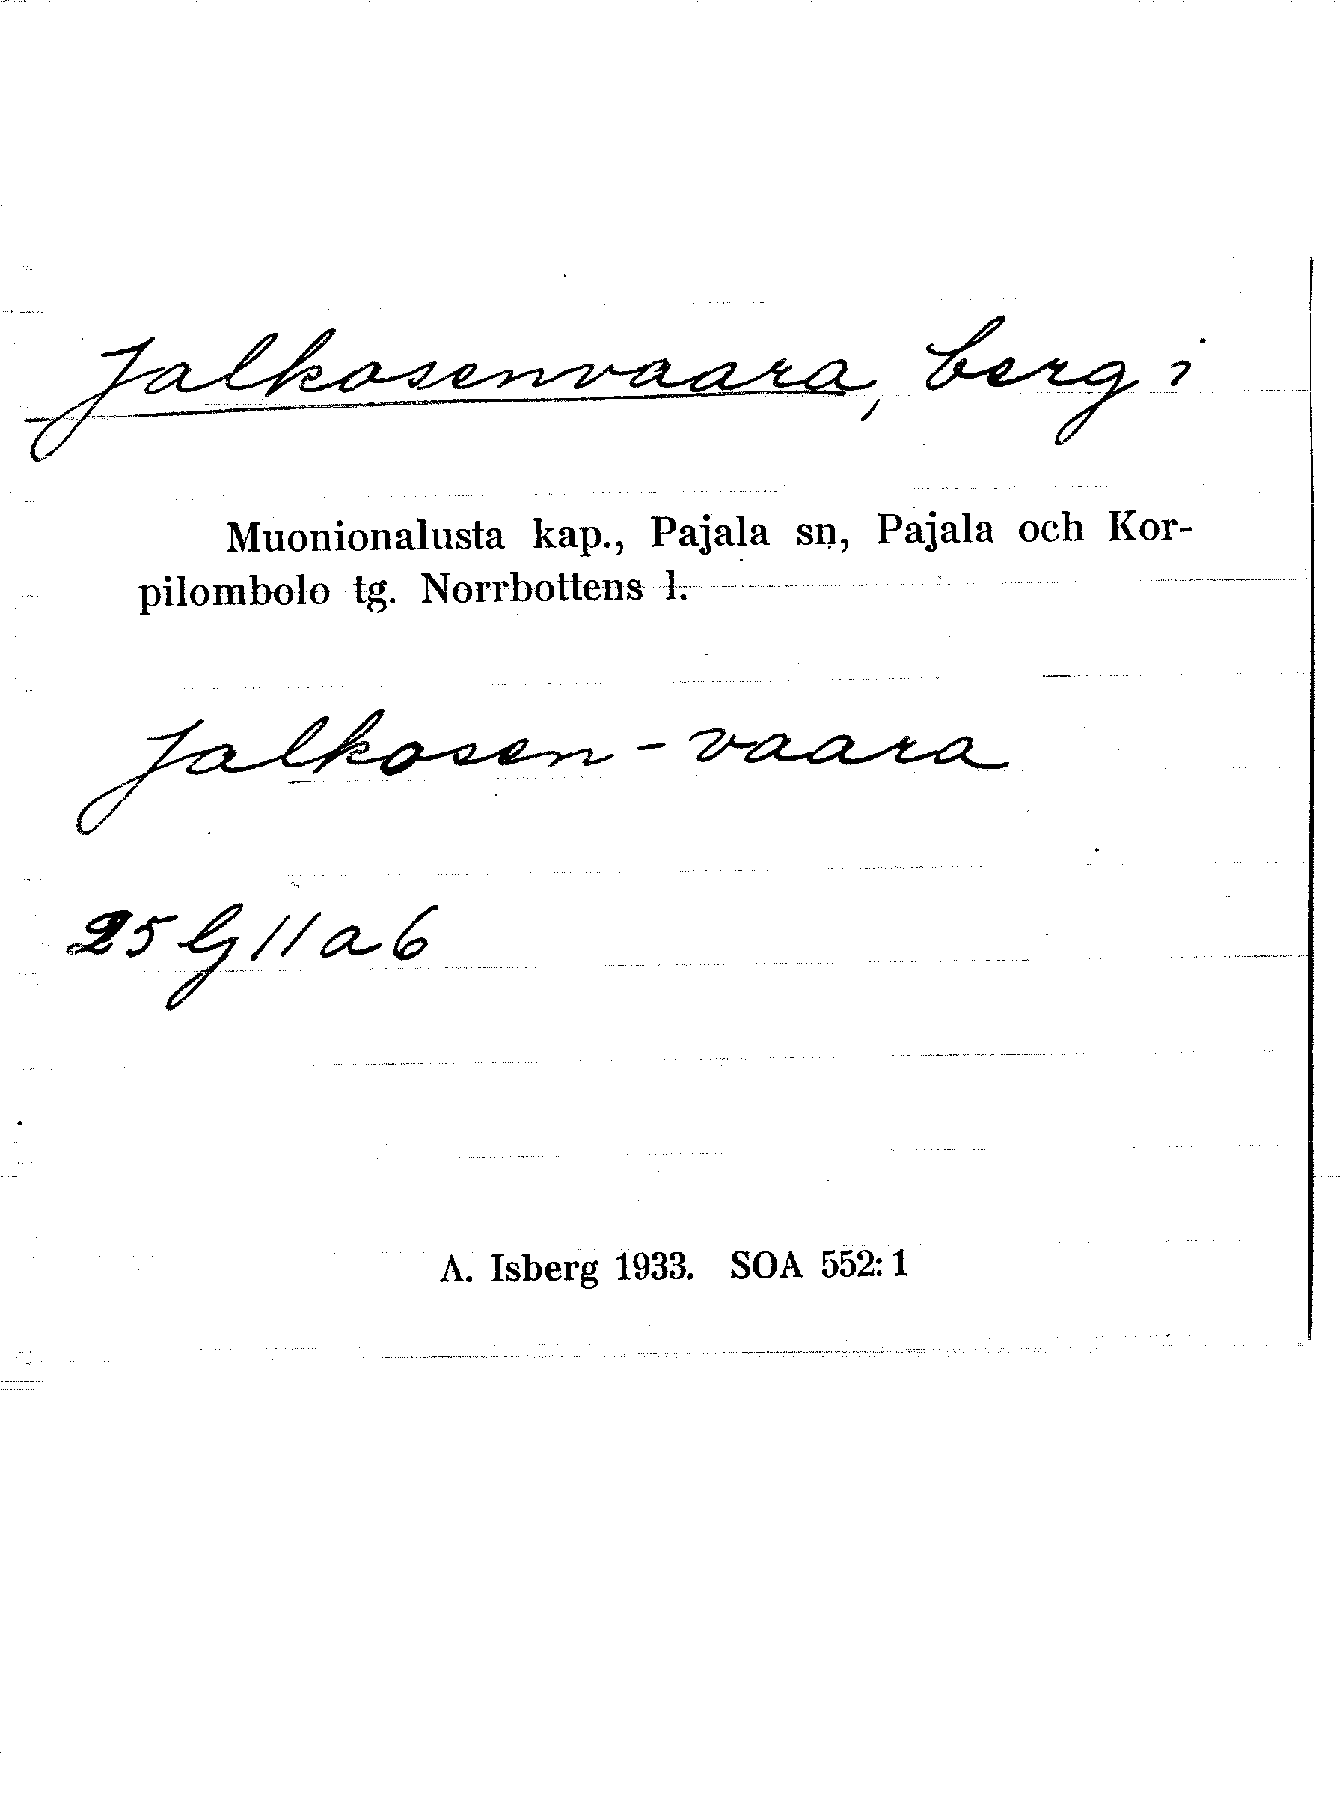 Jalkosenvaara, berg i
Muonionalusta kap., Pajala sn, Pajala och Kor-
pilombolo tg. Norrbottens l.
Jalkosen-vaara
25 G 11 a 6
A. Isberg 1933. SOA 552:1